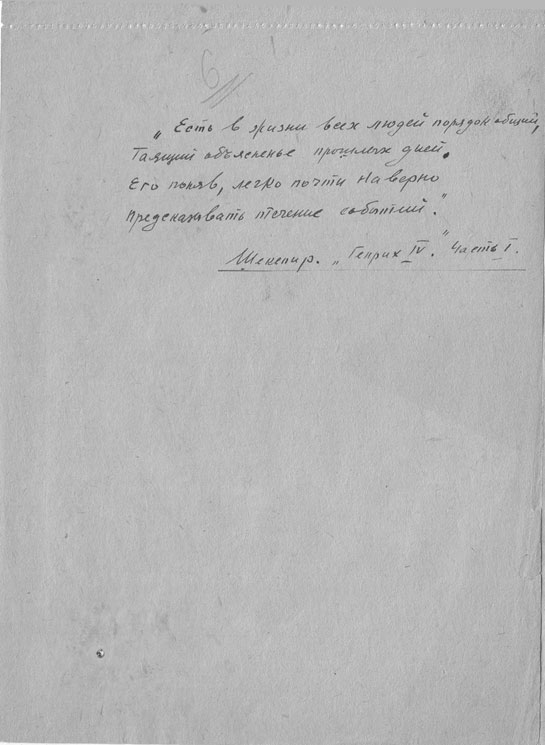 6
„Есть в жизни всех людей порядок общий,
Таящий объясненье прошлых дней.
Его поняв, легко почти наверно
Предсказывать течение событий."
Шекспир. „Генрих IV." Часть I.